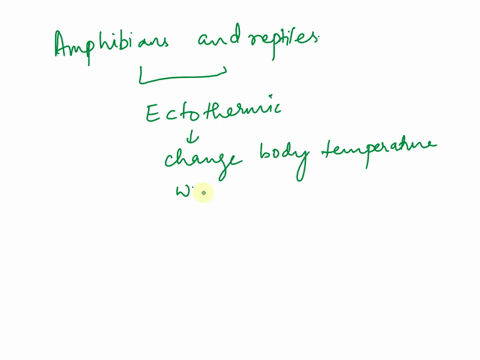 Amphibians and reptiles.
Ectothermic
change body temperature
wi